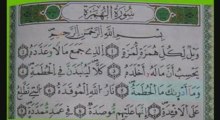 سُورَةُ الهُمَزَةِ
بِسْمِ اللَّهِ الرَّحْمَٰنِ الرَّحِيمِ
وَيْلٌ لِّكُلِّ هُمَزَةٍ لُّمَزَةٍ ۝ الَّذِي جَمَعَ مَالًا وَعَدَّدَهُ ۝
يَحْسَبُ أَنَّ مَالَهُ أَخْلَدَهُ ۝ كَلَّا لَيُنبَذَنَّ فِي الْحُطَمَةِ ۝
وَمَا أَدْرَاكَ مَا الْحُطَمَةُ ۝ نَارُ اللَّهِ الْمُوقَدَةُ ۝ الَّتِي تَطَّلِعُ
عَلَى الْأَفْئِدَةِ ۝ إِنَّهَا عَلَيْهِم مُّؤْصَدَةٌ ۝ فِي عَمَدٍ مُّمَدَّدَةٍ ۝